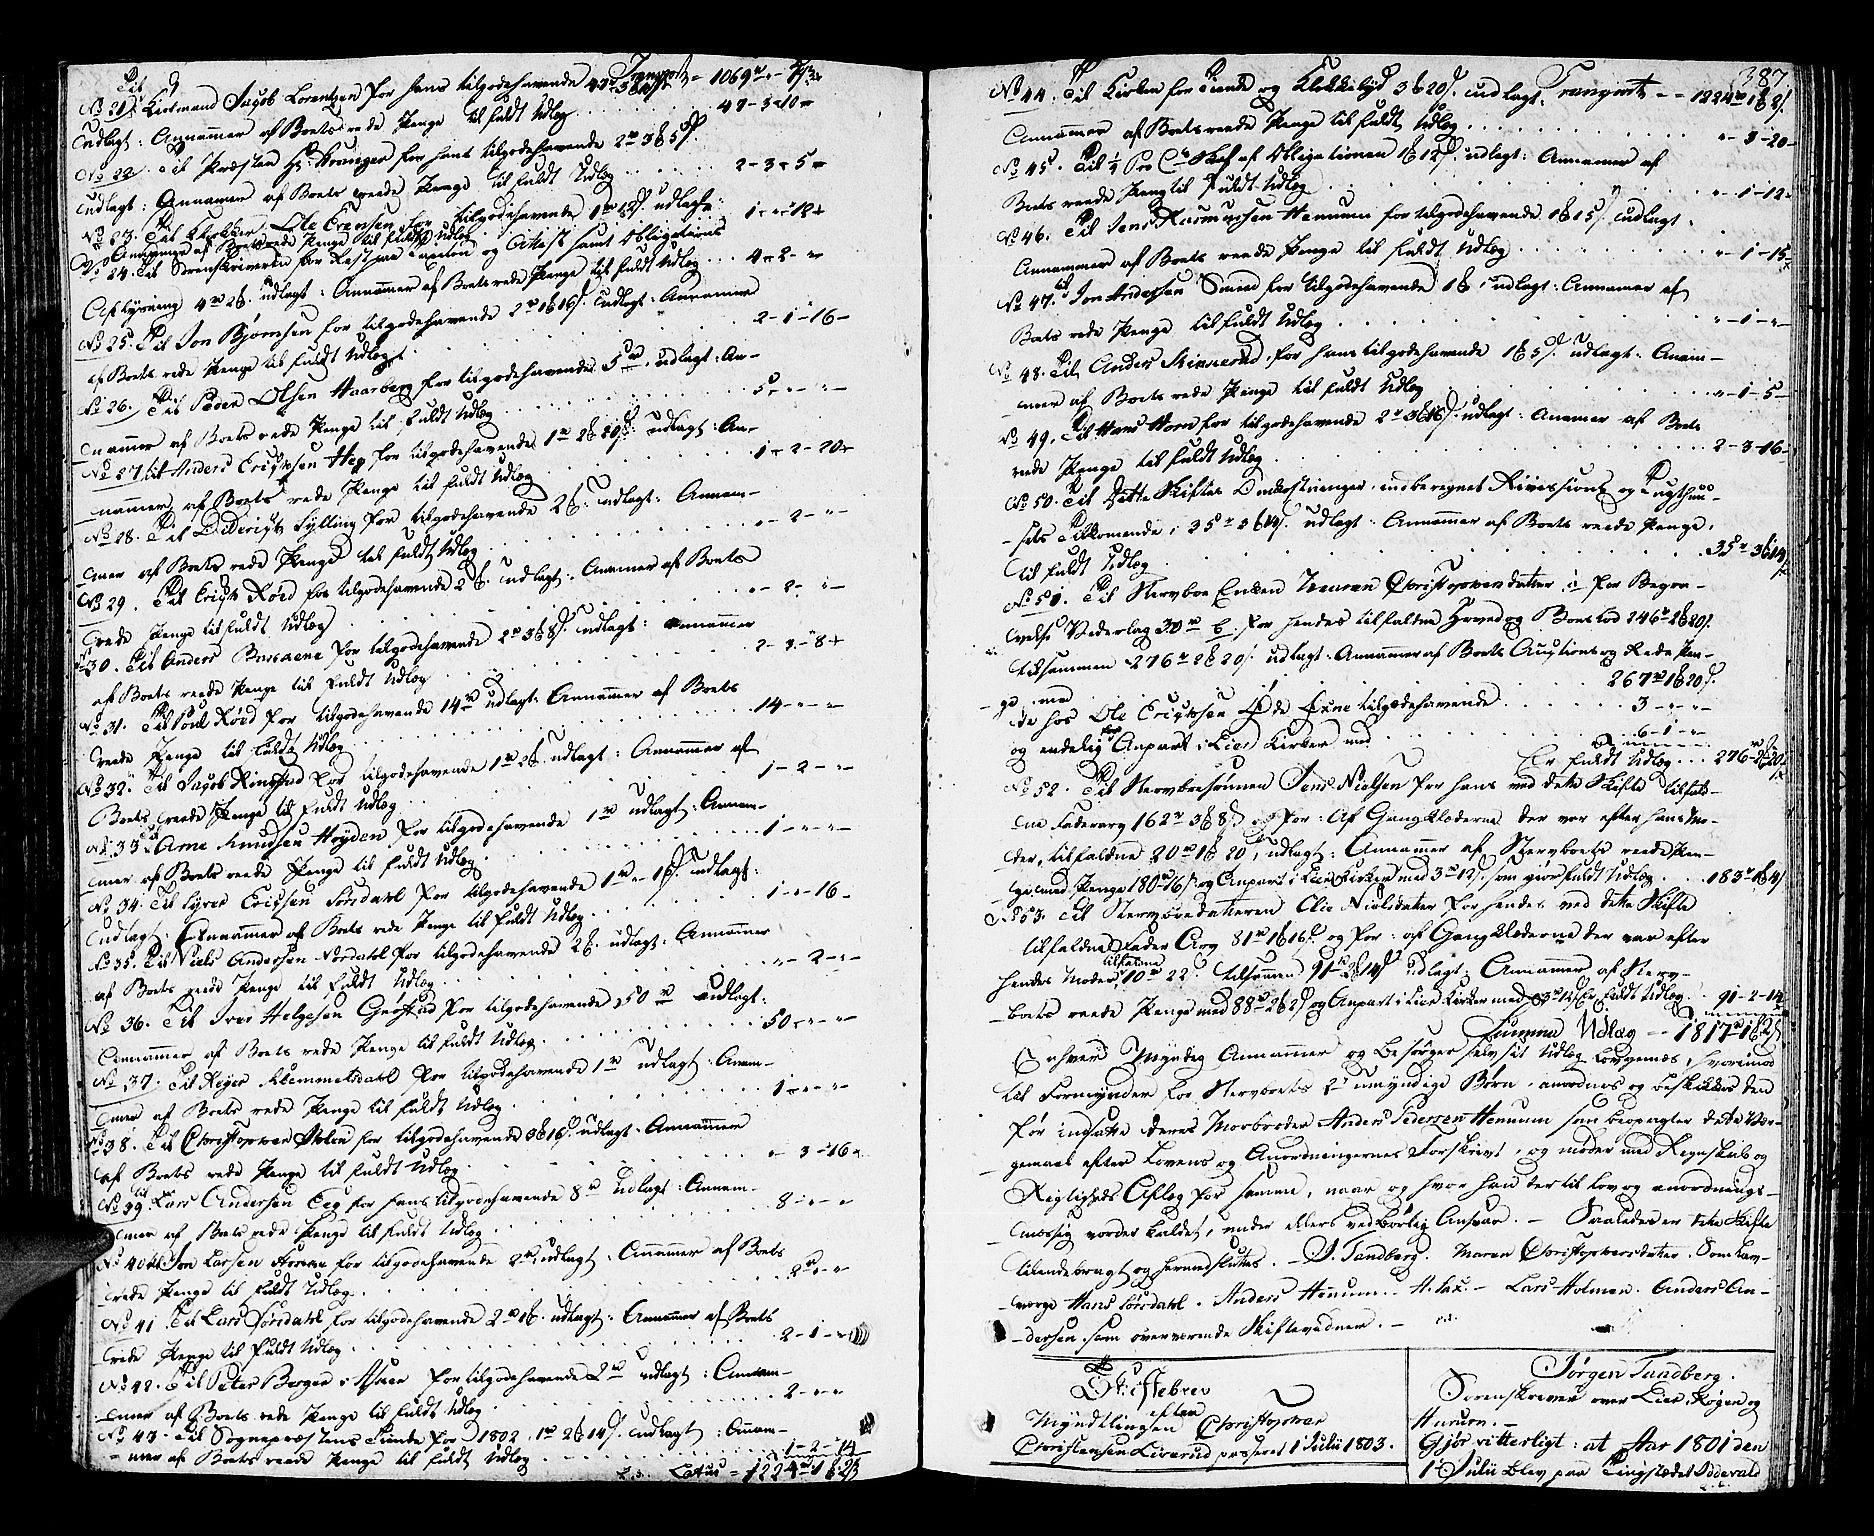 Transport - 1069
No 21. Til Kiøbmand Jacob Lorentzen for hans tilgodehavende
udlagt: Annammer af Boets rede Penge til fuldt Udlæg . . . 47-3-10-
No 22. Til Præsten Hr. for hans tilgodehavende 2 rd 3 ß 5
udlagt: Annammer af Boets reede Penge til fuldt Udlæg . . . 2-3-5-
No 23. Til Ole Evensen for tilgodehavende udlagt:
Annammer af Boets rede Penge til fuldt Udlæg 1 - " - 12
No 24. Til Sorenskriveren for Rest paa og Attest samt Obligations
Aflysning 4 rd 2 udlagt: Annammer af Boets rede Penge til fuldt Udlæg . . . 4-2- "
No 25. Til Jon Bjørnsen for tilgodehavende 2 rd 1 16 udlagt: Annammer
af Boets rede Penge til fuldt Udlæg . . . 2-1-16-
No 26. Til Peder Olsen Haarberg for tilgodehavende 5 rd. udlagt: An-
nammer af Boets rede Penge til fuldt Udlæg . . . 5 - " - " -
No 27. til Anders Erichsen Heg for tilgodehavende 1 rd 2 20 udlagt: An-
nammer af Boets rede Penge til fuldt Udlæg 1-2-20-
No 28. Til Diderich Hylling for tilgodehavende 2 udlagt: Annam-
mer af Boets rede Penge til fuldt Udlæg " - 2 - "
No 29. Til Erich Røed for tilgodehavende 2 udlagt: Annammer af Boets
rede Penge til fuldt Udlæg " - 2 - " -
No 30. Til Anders for tilgodehavende 2 rd 3 8 udlagt: Annammer
af Boets reede Penge til fuldt Udlæg 2-3-8
No 31. Til Poul Røed for tilgodehavende 14 rd udlagt: Annammer af Boets
reede Penge til fuldt Udlæg 14 - " - "
No 32. Til Jacob for tilgodehavende 1 rd 2 udlagt: Annammer af
Boets reede Penge til fuldt Udlæg 1-2- "
No 33 til Arne Knudsen Høyden for tilgodehavende 1 rd udlagt: Annam-
mer af Boets reede Penge til fuldt Udlæg 1 - " - " -
No 34. Til Syver Ericksen Sørsdahl for tilgodehavende udlagt:
Annammer af Boets rede Penge til fuldt Udlæg 1 - " - 16
No 35. Til Niels Andersen Nordahl for tilgodehavende 2 udlagt: Annammer
af Boets reede Penge til fuldt Udlæg " - 2 - " -
No 36. Til Iver Helgesen for tilgodehavende 50 rd udlagt:
Annammer af Boets rede Penge til fuldt Udlæg 50 - " - " -
No 37. Til Reyer Klemmetsdahl for tilgodehavende 1 rd udlagt: Annam-
mer af Boets rede Penge til fuldt Udlæg 1 - " - " -
No 38. Til Christopher for tilgodehavende 3 16 udlagt: Annammer
af Boets rede Penge til fuldt Udlæg " - 3 - 16
No 39. til Lars Andersen Eeg for hans tilgodehavende 8 rd udlagt: Annam-
mer af Boets rede Penge til fuldt Udlæg 8 - " - "
No 40 til Jon Larsen for tilgodehavende 2 rd udlagt: Annammer af Boets
rede Penge til fuldt Udlæg 2 - " - "
No 41 Til Lars Sørsdahl for tilgodehavende 2 rd 1 udlagt: Annammer af Boets
rede Penge til fuldt Udlæg 2-1- "
No 42. Til Peter Borgen i for tilgodehavende 2 rd udlagt: Annam-
mer af Boets rede Penge til fuldt Udlæg 2 - " - "
No 43. Til Sognepræstens Tiende for 1802, 1 rd 2 14 udlagt: Annam-
mer af Boets reede Penge til fuldt Udlæg 1-2-14
Latus = 1224 rd 1 2
387
No 44. Til Kirken for Tiende og 3 20 udlagt: Transport - - 1224 1 2
Annammer af Boets reede Penge til fuldt Udlæg " - 3 - 20 -
No 45. Til ¼ Pro Ct Skat af Obligationen 1 12 udlagt: Annammer af
Boets reede Penge til fuldt Udlæg " - 1 - 12
No 46. Til Jens Rasmussen Hennum for tilgodehavende 1 15 udlagt:
Annammer af Boets reede Penge til fuldt Udlæg " - 1 - 15
No 47. til Jon Andersen Smed for tilgodehavende 1 udlagt: Annammer af
Boets rede Penge til fuldt Udlæg " - 1 - " -
No 48. Til Anders for hans tilgodehavende 1 5 udlagt: Annam-
mer af Boets rede Penge til fuldt Udlæg " - 1 - 5 -
No 49. Til Hans Horn for tilgodehavende 2 rd 3 16 udlagt: Annammer af Boets
rede Penge til fuldt Udlæg 2-3-16-
No 50. Til Dette Skiftes Omkostninger, indberegnet Revissions og Tugthuu-
sets Tilkomende, 35 rd 3 14 udlagt: Annammer af Boets reede Penge,
til fuldt Udlæg 35 3 14
No 51. Til Stervboe Enken Maren Christophersdatter for Begra-
velse Vederlag 30 rd for hendes tilfaldne Hoved og Boeslod 246 rd 2 20
tilsammen 276 rd 2 20 udlagt: Annammer af Boets Auctions og Rede Pen-
ge med 267 rd 1 20
de hos Ole Erichsen tilgodehavende 3 - " - "
og endelig Anpart i Lier Kirker med 6 - 1 - "
Er fuldt Udlæg . . . 276 2 20
No 52. Til Stervboesønnen Jens Nielsen for hans ved dette Skifte tilfald-
ne Faderarv 162 rd 3 8 og for: Af Gangklæderne der var efter hans Mo-
der, tilfaldne 20 rd 1 20, udlagt: Annammer af Stervboets reede Pen-
ge med Penge 180 og Anpart i Lier Kirker med 3 rd 12 som giør fuldt Udlæg . . 183
No 53. Til Stervboedatteren Olia Nielsdatter for hendes ved dette Skifte
tilfaldne Fader Arv 81 rd 1 16 og for: af Gangklæderne der var efter
hendes Moder tilfaldne 10 rd 22 tilsammen 91 2 14 udlagt: Annammer af Sterv-
boets reede Penge med 88 rd 2 2 og Anpart i Lier Kirker med 3 rd 12 Er fuldt Udlæg . . 91-2-14
Summa Udlæg - - 1817 1 2
Enhver Myndig Annammer og besørger selv sit Udlæg , hvorimod
til Formynder for Stervboets 2 umyndige Børn, anordnes og beskikkes den
før indsatte deres Morbroder Anders Pedersen Hennum som beopagter dette Vær-
gemaal efter Lovens og Anordningernes Forskrivt, og møder med Regnskab og
Rigtigheds Aflæg for samme, naar og hvor han dertil lov og anordnings-
mæssig vorder kaldet, under ellers vedbørlig Ansvar. - Saaledes er dette Skifte
tilendebragt og hermed sluttet. - J. Tandberg. Maren Christophersdatter. Som Lav-
værge Hans Sørsdahl. Anders Hennum. - Lars Holmen. Anders An-
dersen som overværende Skiftevidner. -
Skiftebrev
efter
Myndlingen Christopher
Christensen Liverud passeret 1 Julii 1803.
Jørgen Tandberg.
Sorenskriver over Lier Røgen og
Hurum. -
Giør vitterligt: at Aar 1801 den
1 Julii blev paa Tingstædet Oddevald